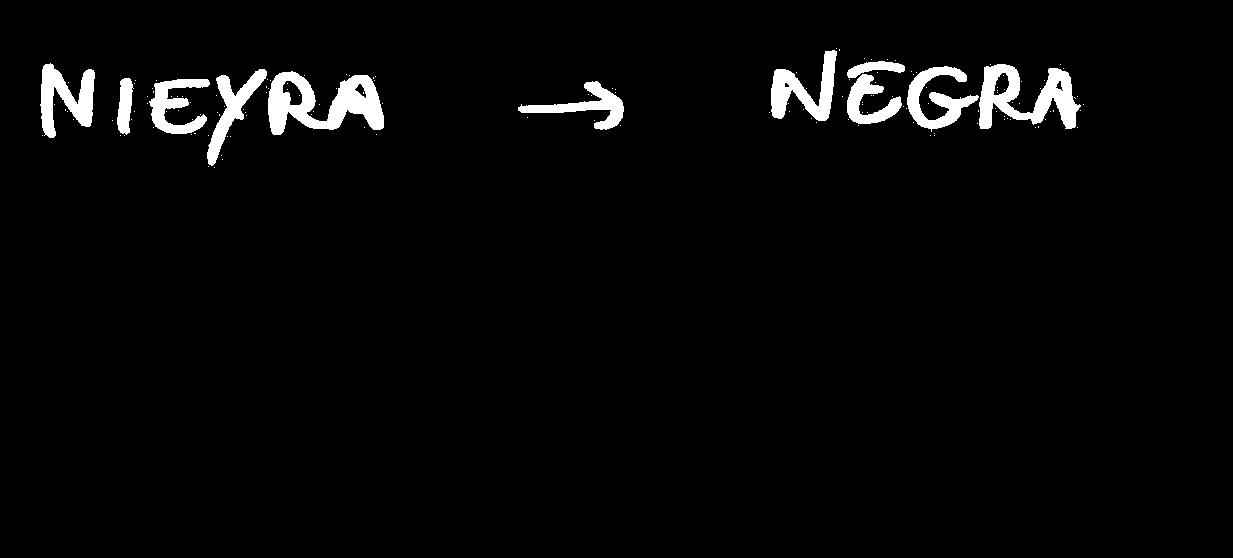 NIEYRA → NEGRA